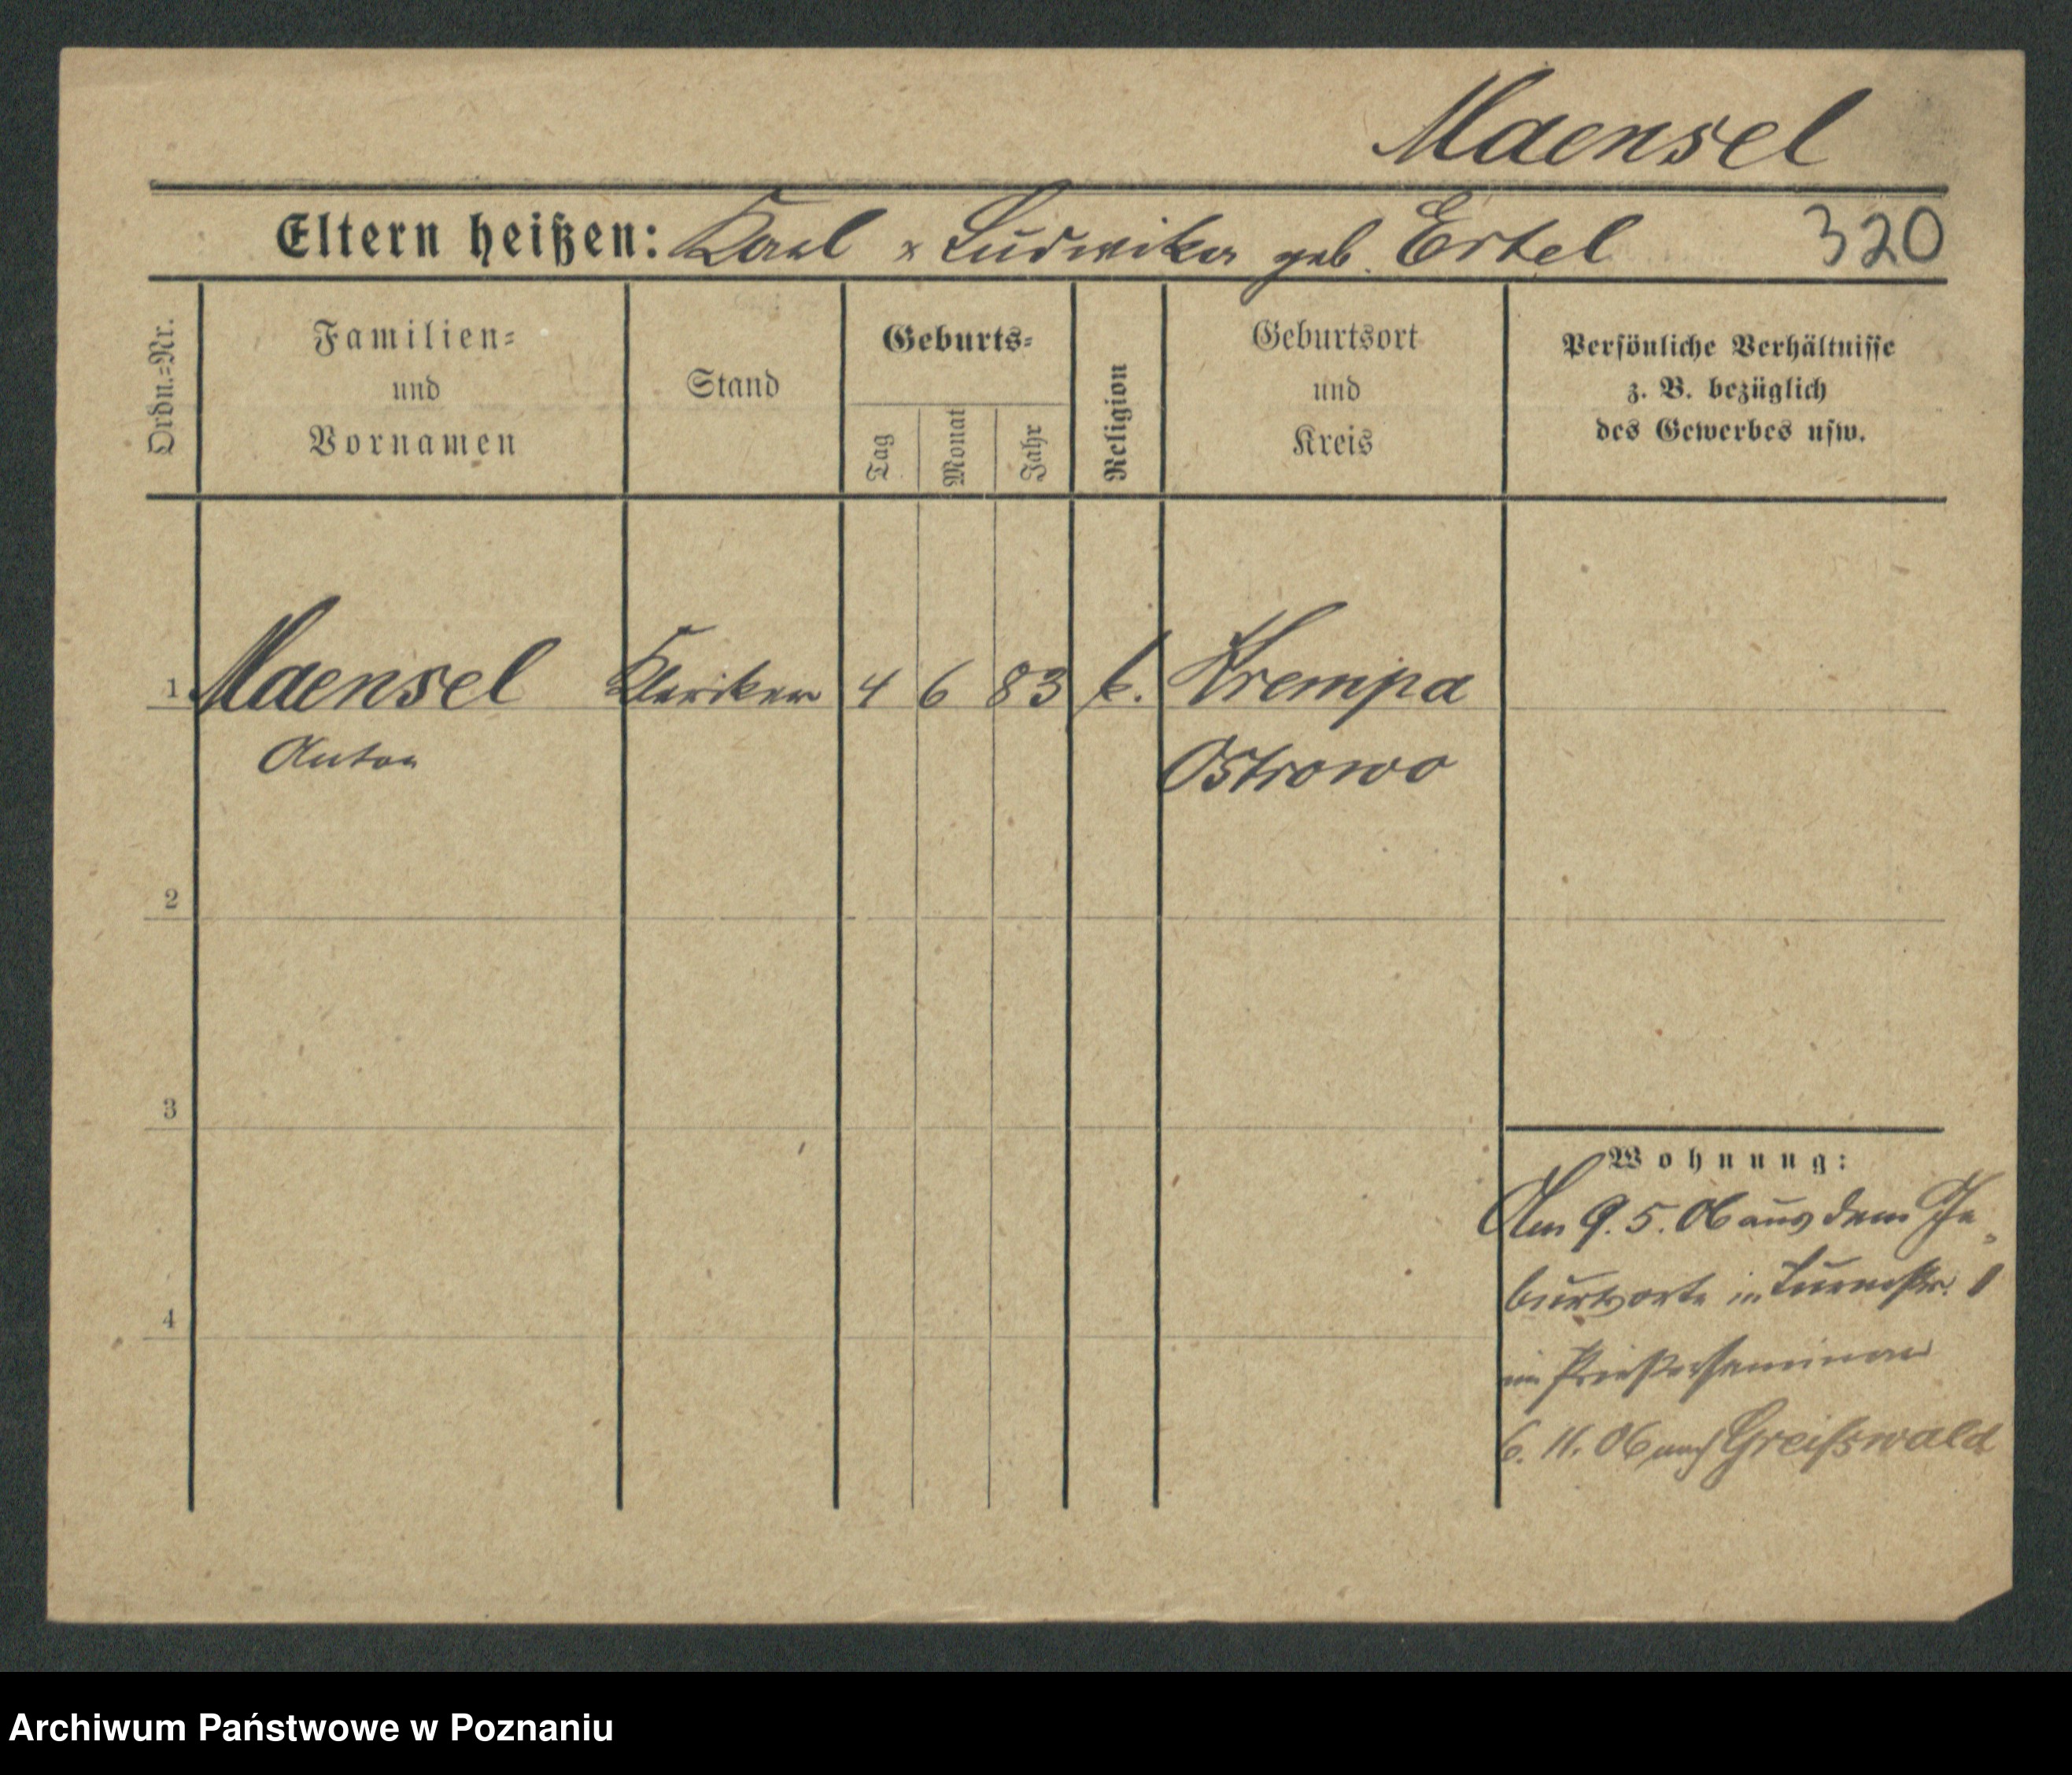 Maensel
Eltern heißen: Karl & Ludwika geb. Ertel 320
Ordn.-Nr.
Familien-
und
Vornamen
Stand
Geburts-
Tag
Monat
Jahr
Religion
Geburtsort
und
Kreis
Persönliche Verhältnisse
z. B. bezüglich
des Gewerbes usw.
1 Maensel Kleriker 4 6 83 k. Krempa
Anton Ostrowo
2
3
4
Wohnung:
Am 9. 5. 06 aus dem Ge-
burtsorte in Turmstr. 1
im Priesterseminar
6. 11. 06 nach Greifswald
Archiwum Państwowe w Poznaniu